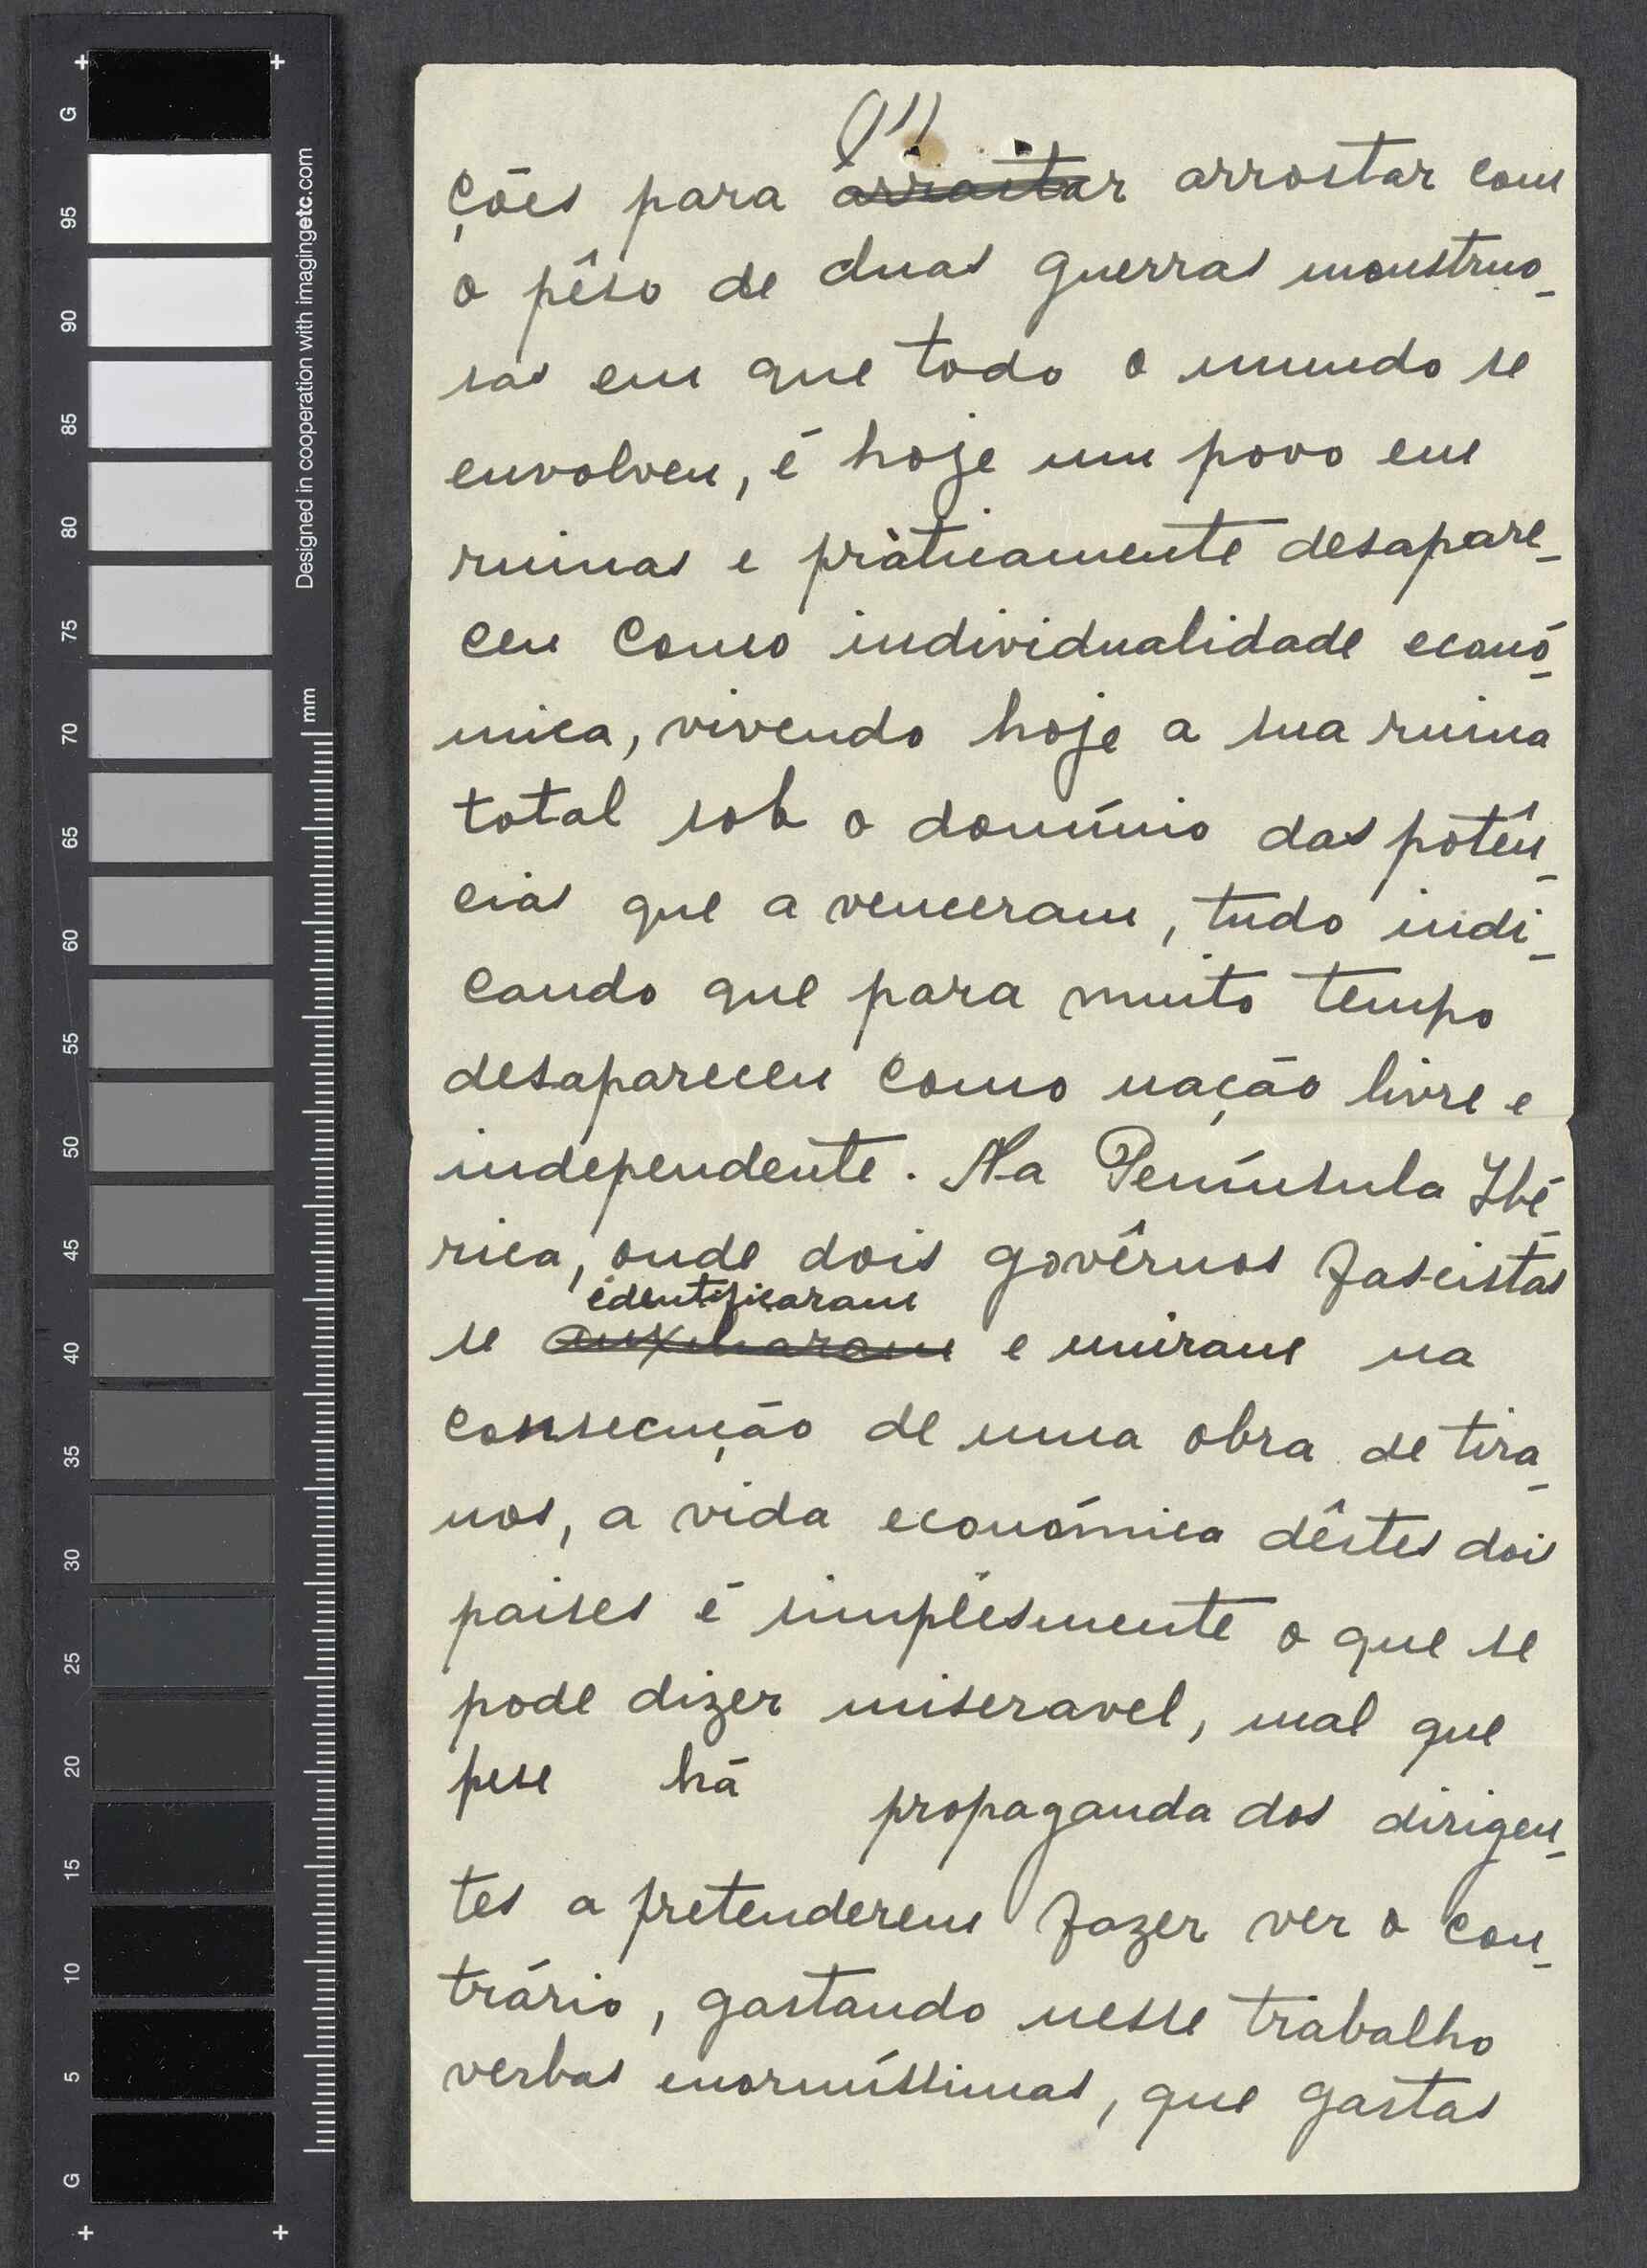 ções para arrastar arrostar com
o pêso de duas guerras monstruo-
sas em que todo o mundo se
envolveu, é hoje um povo em
ruinas e pràticamente desapare-
ceu como individualidade econó-
mica, vivendo hoje a sua ruina
total sob o domínio das potên-
cias que a venceram, tudo indi-
cando que para muito tempo
desapareceu como nação livre e
independente. Na Península Ibé-
rica, onde dois govêrnos fascistas
identificaram
se auxiliaram e uniram na
consecução de uma obra de tira-
nos, a vida económica dêstes dois
paises é simplesmente o que se
pode dizer miseravel, mal que
pese há propaganda dos dirigen-
tes a pretenderem fazer ver o con-
trário, gastando nesse trabalho
verbas enormíssimas, que gastas
Designed in cooperation with imagingetc.com
mm
G
95
90
85
80
75
70
65
60
55
50
45
40
35
30
25
20
15
10
5
G